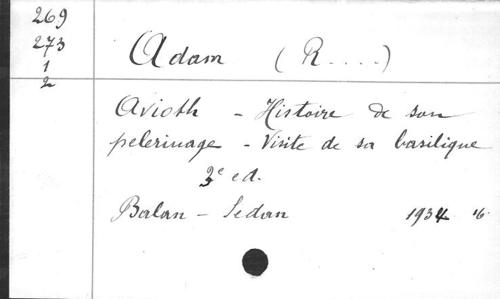 269
273
1
2
Adam (R....)
Avioth - Histoire de son
pelerinage - Visite de sa basilique
3e ed.
Balan - Sedan 1934 16